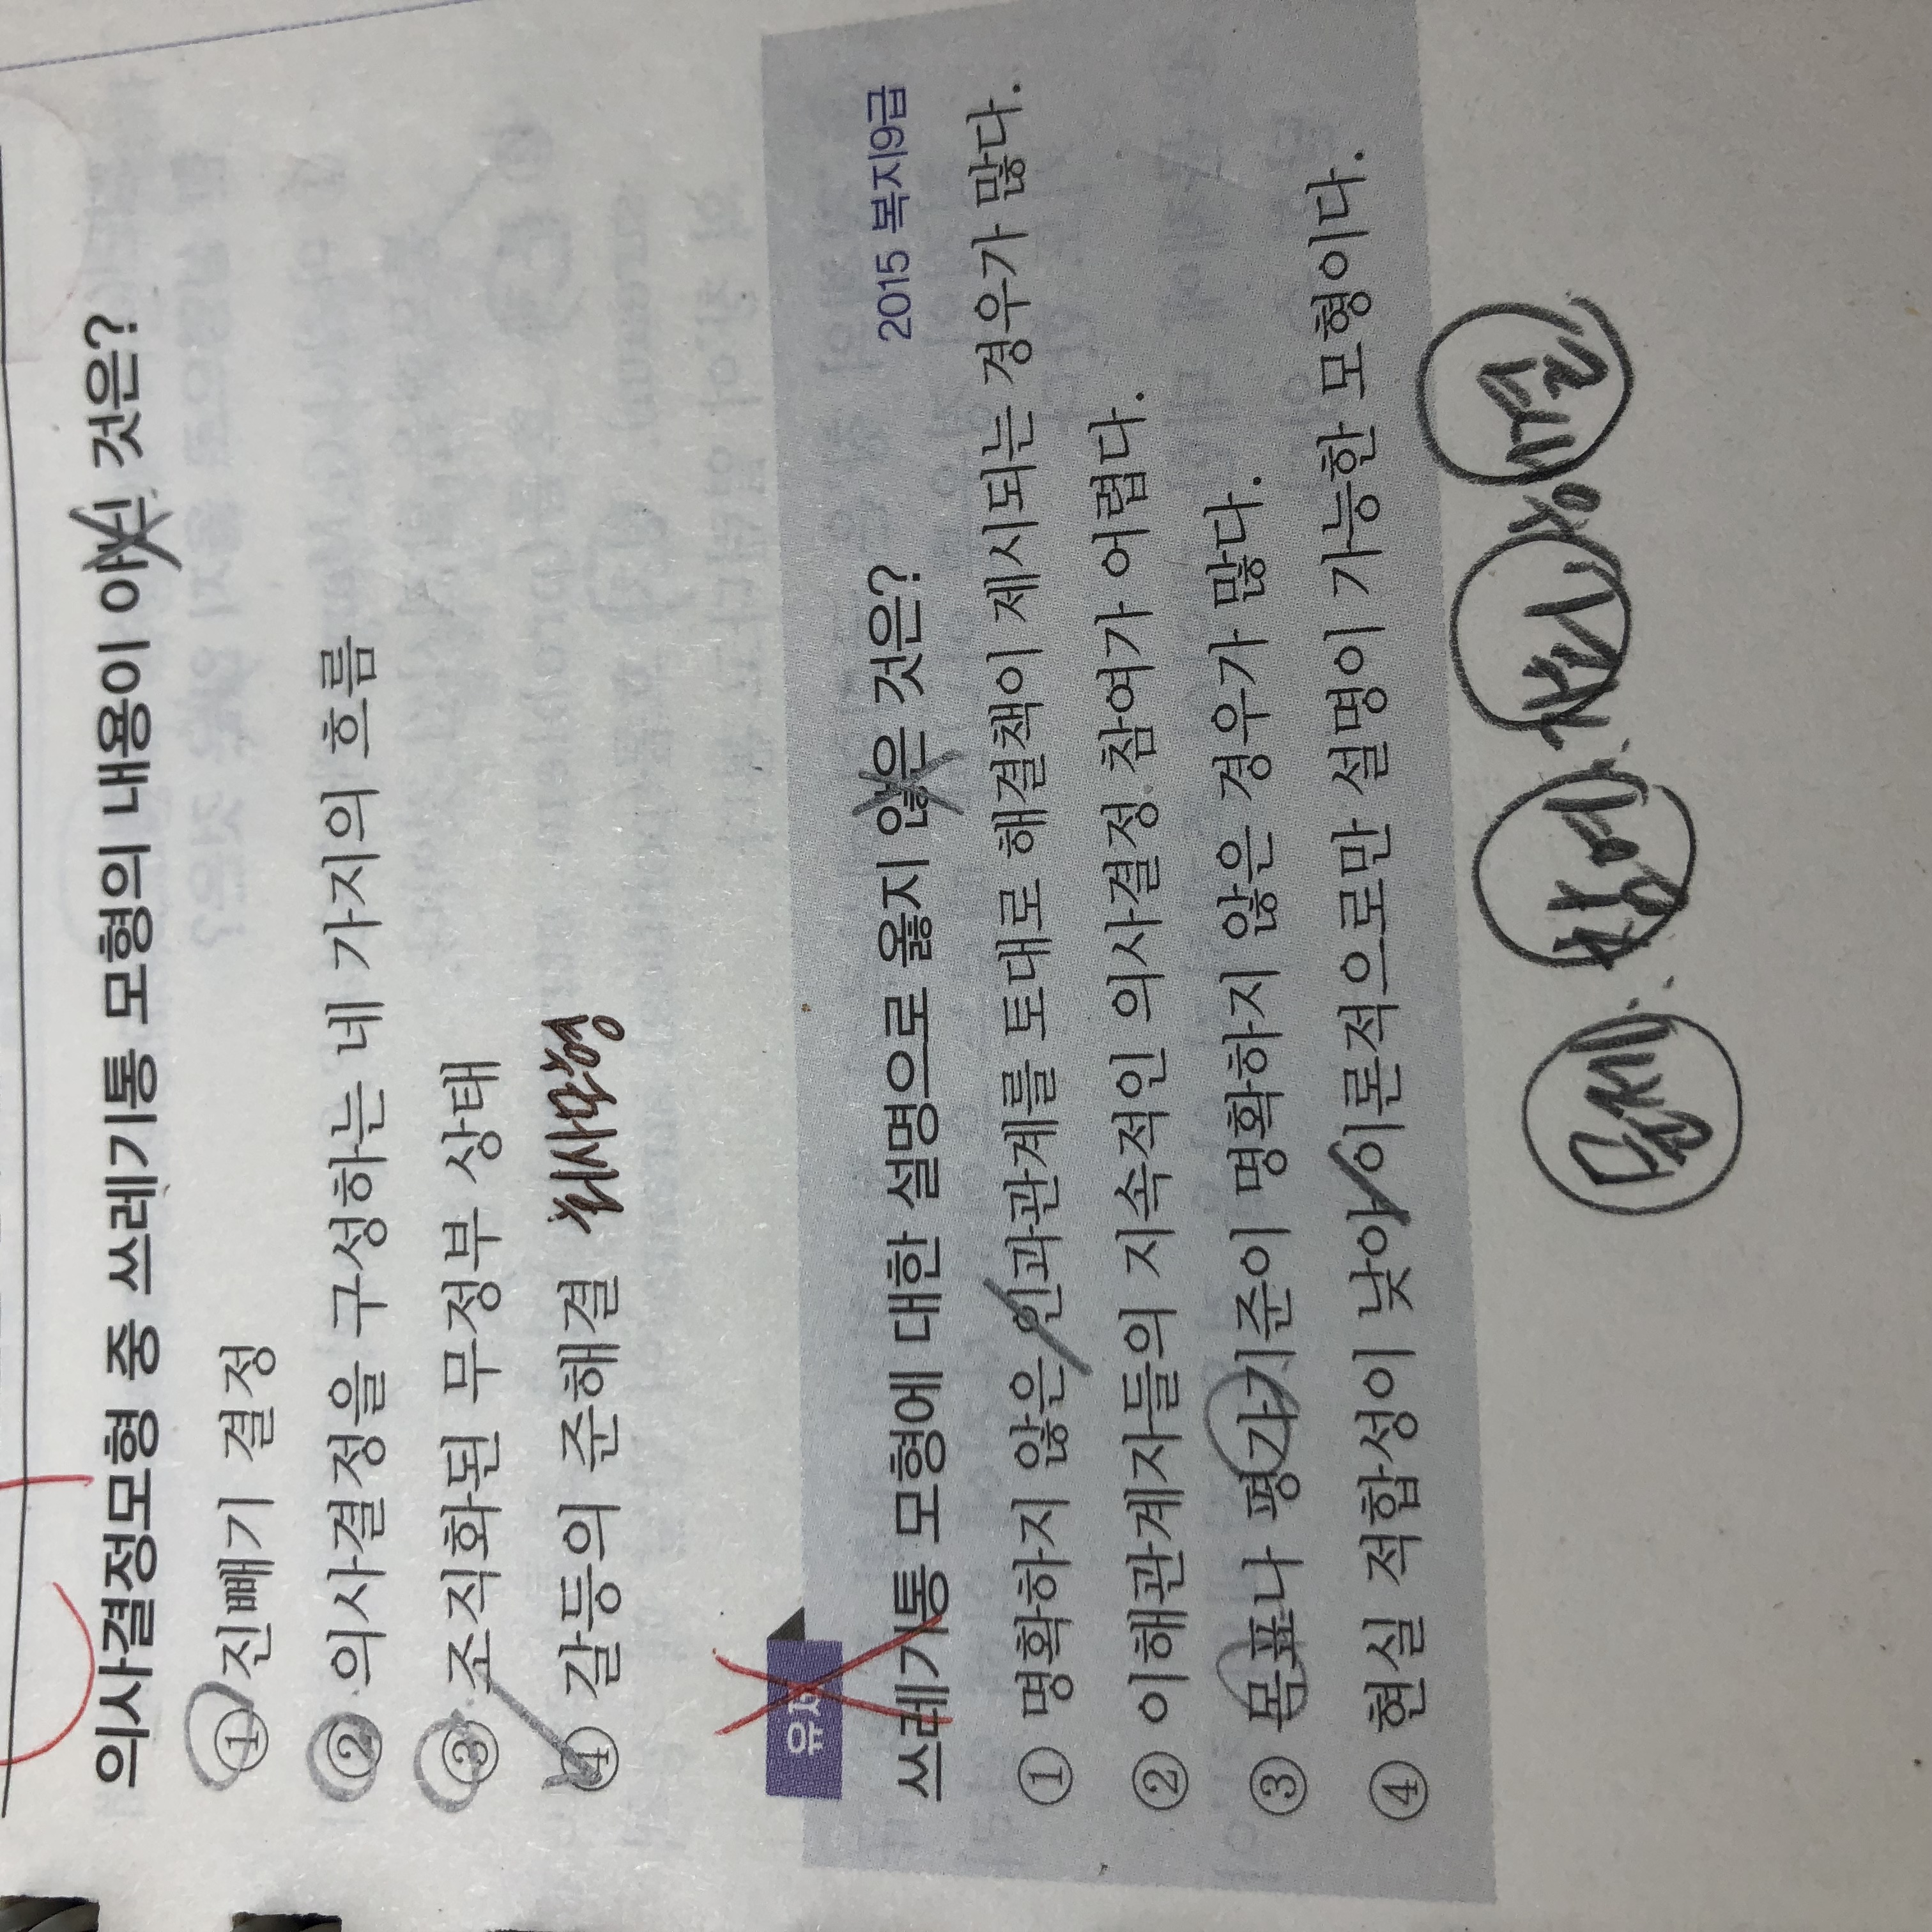 의사결정모형 중 쓰레기통 모형의 내용이 아닌 것은?
① 진빼기 결정
② 의사결정을 구성하는 네 가지의 흐름
③ 조직화된 무정부 상태
④ 갈등의 준해결 회사모형
유사
2015 복지9급
쓰레기통 모형에 대한 설명으로 옳지 않은 것은?
① 명확하지 않은 인과관계를 토대로 해결책이 제시되는 경우가 많다.
② 이해관계자들의 지속적인 의사결정 참여가 어렵다.
③ 목표나 평가기준이 명확하지 않은 경우가 많다.
④ 현실 적합성이 낮아 이론적으로만 설명이 가능한 모형이다.
문제. 참여.